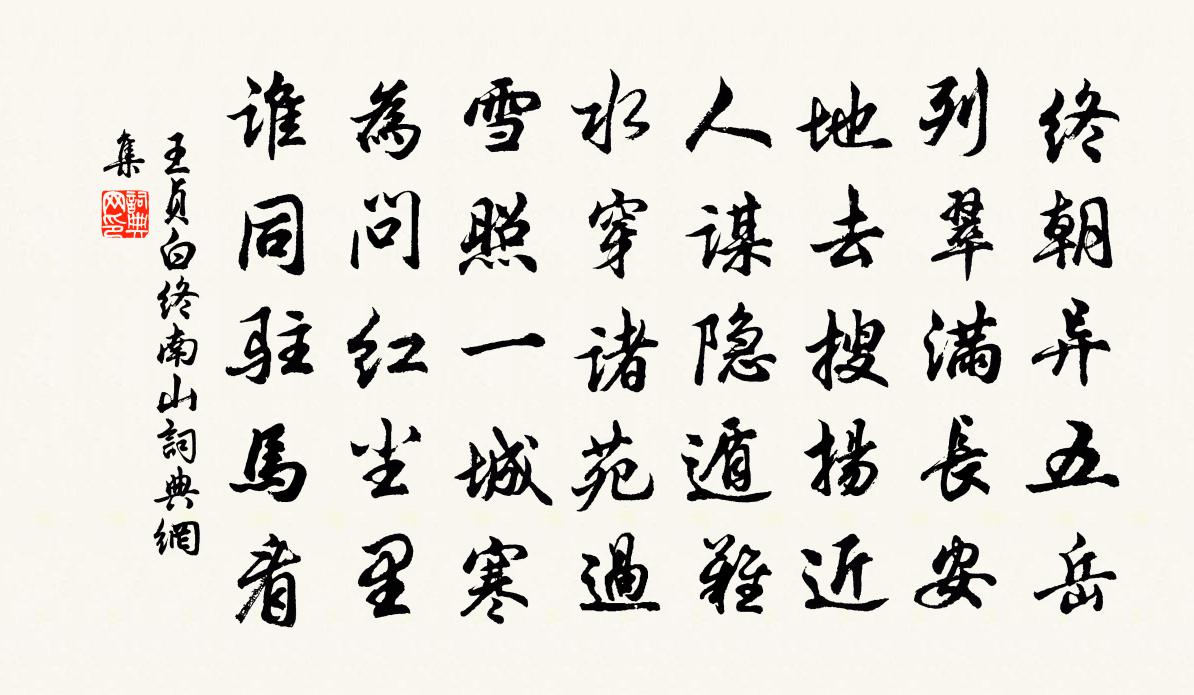 终朝异五岳
列翠滿長安
地去搜揚近
人谋隐遁難
水穿诸苑過
雪照一城寒
為问红尘里
谁同駐馬看
王贞白终南山詞典網
集
詞典
网印